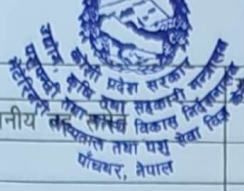 कोशी प्रदेश सरकार
उद्योग, कृषि तथा सहकारी मन्त्रालय
पशुपन्छी तथा मत्स्य विकास निर्देशनालय
भेटेरिनरी अस्पताल तथा पशु सेवा विज्ञ
पाँचथर, नेपाल
नीय